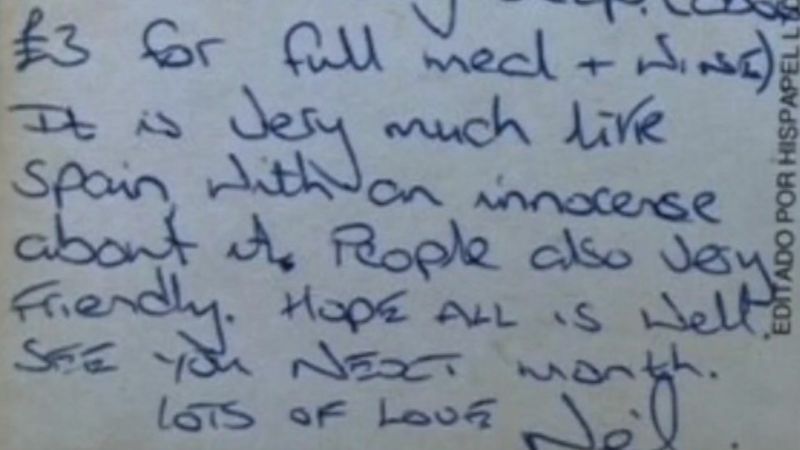 £3 for full meal + WINE)
It is very much like
Spain with an innocense
about it. People also very
Friendly. HOPE ALL IS Well.
SEE YOU NEXT month.
LOTS OF LOVE Neil.
EDITADO POR HISPAPEL L